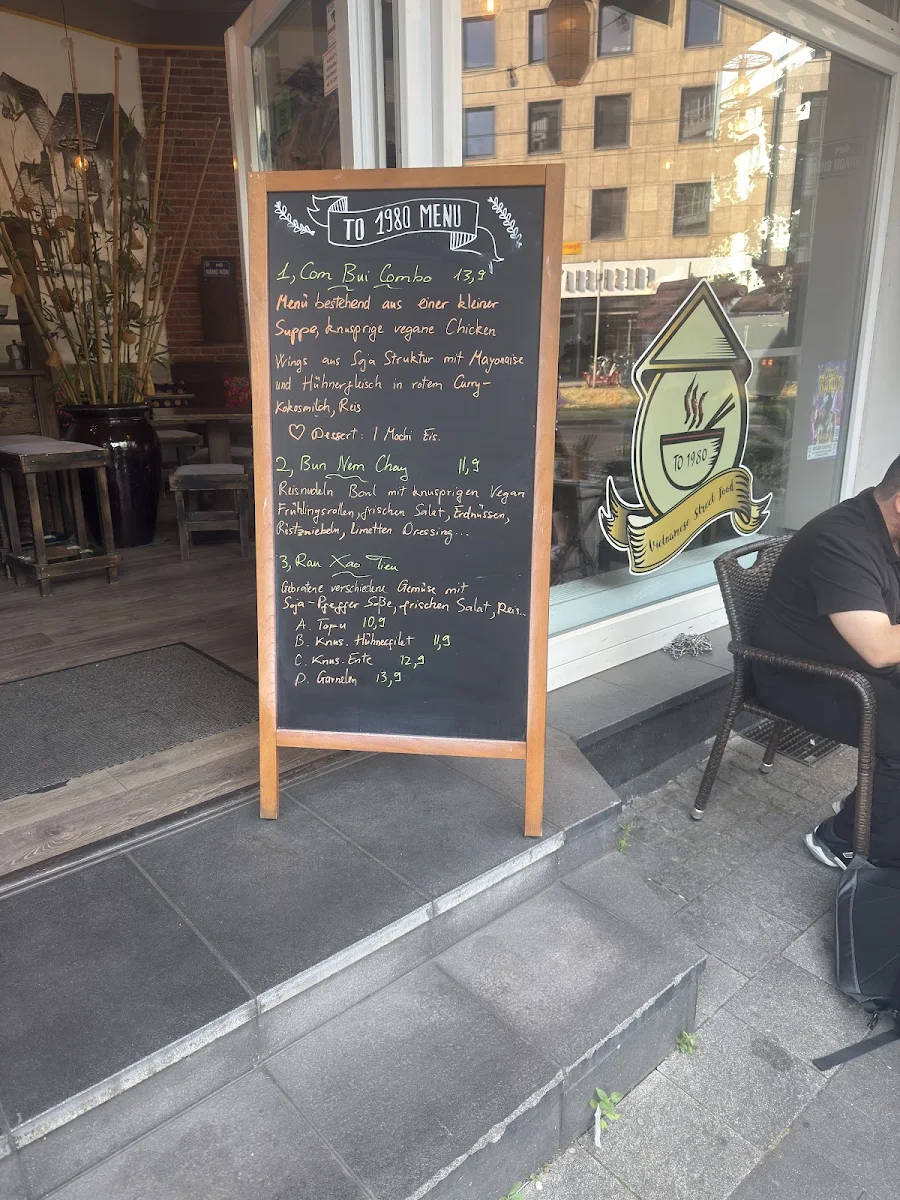 TO 1980 MENU
1, Com Bui Combo 13,9
Menü bestehend aus einer kleiner
Suppe, knusprige vegane Chicken
Wings aus Soja Struktur mit Mayonaise
und Hühnerfleisch in rotem Curry-
Kokosmilch, Reis
♡ Dessert: 1 Mochi Eis.
2, Bun Nem Chay 11,9
Reisnudeln Bowl mit knusprigen Vegan
Frühlingsrollen, frischen Salat, Erdnüssen,
Röstzwiebeln, Limetten Dressing...
3, Rau Xao Tieu
Gebratene verschiedene Gemüse mit
Soja-Pfeffer Soße, frischen Salat, Reis..
A. Tofu 10,9
B. Knus. Hühnerfilet 11,9
C. Knus. Ente 12,9
D. Garnelen 13,9
TO 1980
Vietnamese Street Food
4